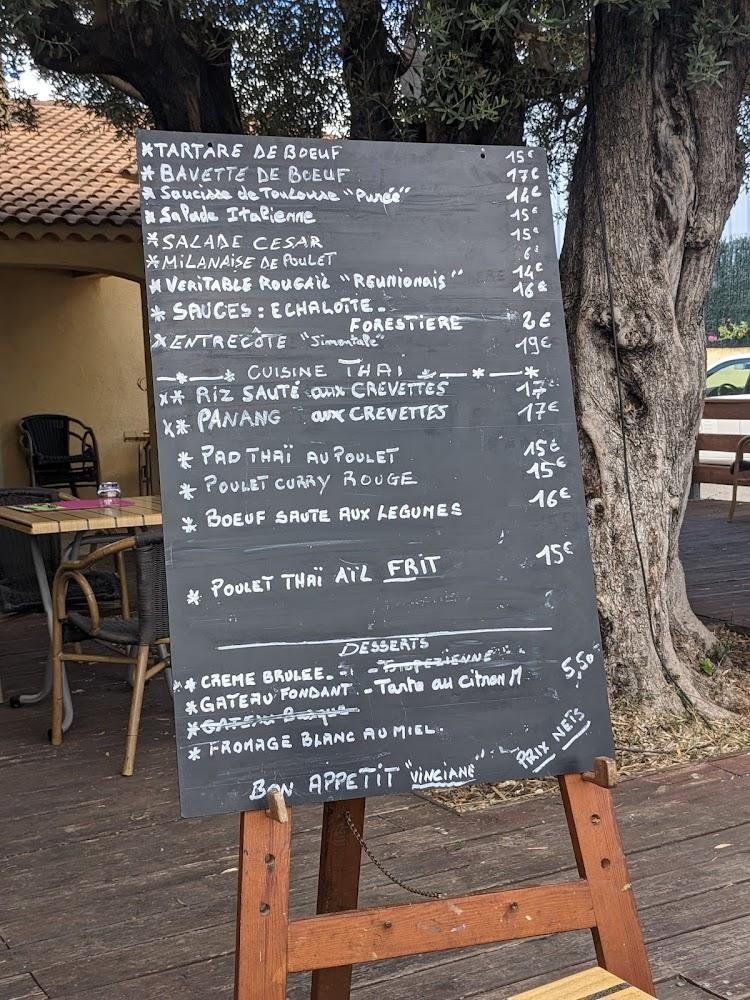 *TARTARE DE BOEUF 15€
* BAVETTE DE BOEUF 17€
* Saucisse de Toulouse "Purée" 14€
* Salade Italienne 15€
* SALADE CESAR 15€
* MILANAISE DE POULET 14€
* VERITABLE ROUGAIL "REUNIONAIS" 16€
* SAUCES: ECHALOTTE.
FORESTIERE 2€
* ENTRECÔTE "Simentale" 19€
CUISINE THAI
** RIZ SAUTÉ aux CREVETTES 17€
** PANANG aux CREVETTES 17€
* PAD THAÏ AU POULET 15€
* POULET CURRY ROUGE 15€
* BOEUF SAUTE AUX LEGUMES 16€
* POULET THAÏ AÏL FRIT 15€
DESSERTS
* CREME BRULEE. - TROPEZIENNE
* GATEAU FONDANT - Tarte au citron M 5,50
* GATEAU Basque
* FROMAGE BLANC AU MIEL.
PRIX NETS
BON APPETIT "VINCIANE"